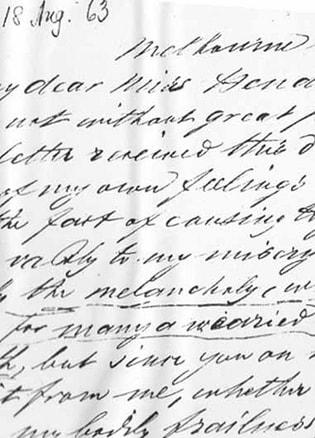 18 Aug. 63
Melbourne
my dear Miss Hend
not without great p
letter received this d
of my own feelings
the fact of causing
vably to my misery
the melancholy
for many a wearied
th, but since you on
it from me, whether
my bodily frailness